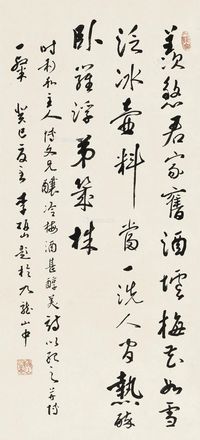 羨煞君家舊酒壚梅花如雪
泛冰壺料當一洗人間熱醉
臥羅浮第幾株
時利和主人博文兄釀冷梅酒甚醇美詩以紀之并博
一粲 癸巳夏至 李研山題於九龍山中